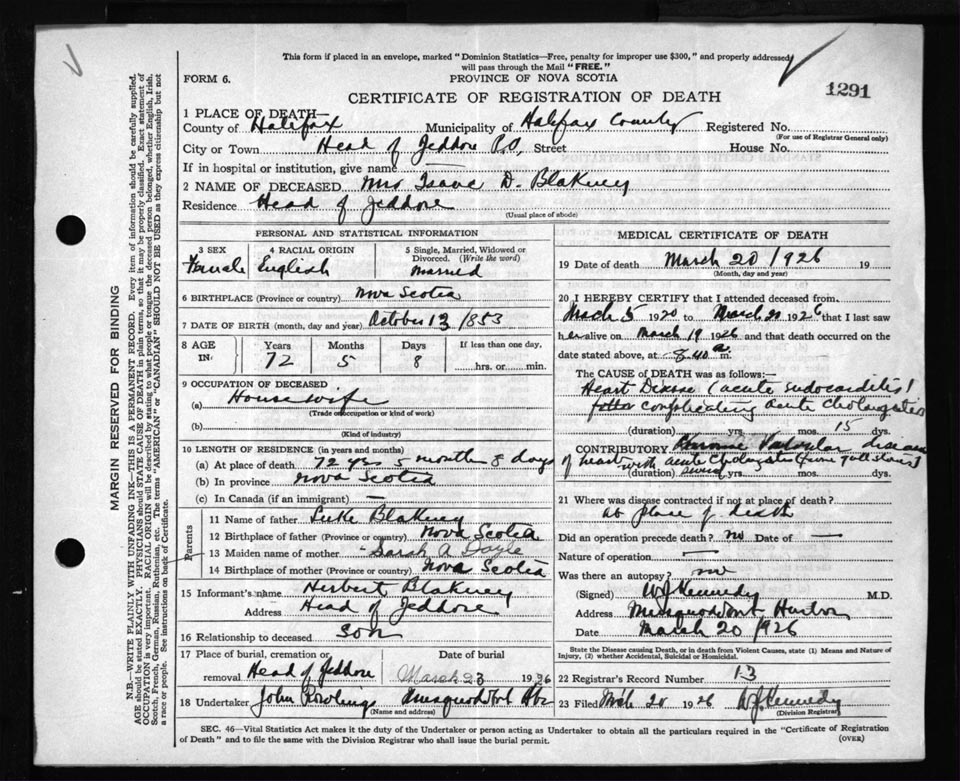 This form if placed in an envelope, marked "Dominion Statistics—Free, penalty for improper use $300," and properly addressed
will pass through the Mail "FREE."
FORM 6.
PROVINCE OF NOVA SCOTIA
CERTIFICATE OF REGISTRATION OF DEATH
1291
1 PLACE OF DEATH—
County of Halifax Municipality of Halifax County Registered No.
(For use of Registrar General only)
City or Town Head of Jeddore P.O, Street House No.
If in hospital or institution, give name
2 NAME OF DECEASED Mrs Isaac D. Blakney
Residence Head of Jeddore
(Usual place of abode)
PERSONAL AND STATISTICAL INFORMATION
3 SEX
Female
4 RACIAL ORIGIN
English
5 Single, Married, Widowed or
Divorced. (Write the word)
married
6 BIRTHPLACE (Province or country) Nova Scotia
7 DATE OF BIRTH (month, day and year) October 12 1853
8 AGE IN: Years Months Days If less than one day.
72 5 8 hrs. or min.
9 OCCUPATION OF DECEASED
(a) House wife
(Trade occupation or kind of work)
(b)
(Kind of industry)
10 LENGTH OF RESIDENCE (in years and months)
(a) At place of death 72 yrs 5 months 8 days
(b) In province Nova Scotia
(c) In Canada (if an immigrant) —
Parents
11 Name of father Luke Blakney
12 Birthplace of father (Province or country) Nova Scotia
13 Maiden name of mother Sarah A Doyle
14 Birthplace of mother (Province or country) Nova Scotia
15 Informant's name Herbert Blakney
Address Head of Jeddore
16 Relationship to deceased son
17 Place of burial, cremation or Date of burial
removal Head of Jeddore March 23 1926
18 Undertaker John Rowlings Musquodoboit Hbr
(Name and address)
MEDICAL CERTIFICATE OF DEATH
19 Date of death March 20 1926 19
(Month, day and year)
20 I HEREBY CERTIFY that I attended deceased from
March 5 1920 to March 20 1926 that I last saw
her alive on March 19 1926 and that death occurred on the
date stated above, at 8.40 a m.
The CAUSE OF DEATH was as follows:—
Heart Disease (acute endocarditis)
complicating acute Cholangitis
(duration) yrs. mos. 15 dys.
CONTRIBUTORY Valvular disease
of heart with acute (from gall stones)
(duration) yrs. mos. dys.
21 Where was disease contracted if not at place of death?
at place of death
Did an operation precede death? no Date of —
Nature of operation —
Was there an autopsy? no
(Signed) W J Kennedy M.D.
Address Musquodoboit Harbor
Date March 20 1926
State the Disease causing Death, or in death from Violent Causes, state (1) Means and Nature of
Injury, (2) whether Accidental, Suicidal or Homicidal.
22 Registrar's Record Number 13
23 Filed Mch 20 1926 W J Kennedy
(Division Registrar)
SEC. 46—Vital Statistics Act makes it the duty of the Undertaker or person acting as Undertaker to obtain all the particulars required in the "Certificate of Registration
of Death" and to file the same with the Division Registrar who shall issue the burial permit.
(OVER)
MARGIN RESERVED FOR BINDING
N.B.—WRITE PLAINLY WITH UNFADING INK—THIS IS A PERMANENT RECORD. Every item of information should be carefully supplied.
AGE should be stated EXACTLY. PHYSICIANS should STATE CAUSE OF DEATH in plain terms, so that it may be properly classified. Exact statement of
OCCUPATION is very important. RACIAL ORIGIN will be described by stating to what people or tongue the deceased person belonged, whether English, Irish,
Scotch, French, German, Russian, Ruthenian, etc. The terms "AMERICAN" or "CANADIAN" SHOULD NOT BE USED as they express citizenship but not
a race or people. See instructions on back of Certificate.